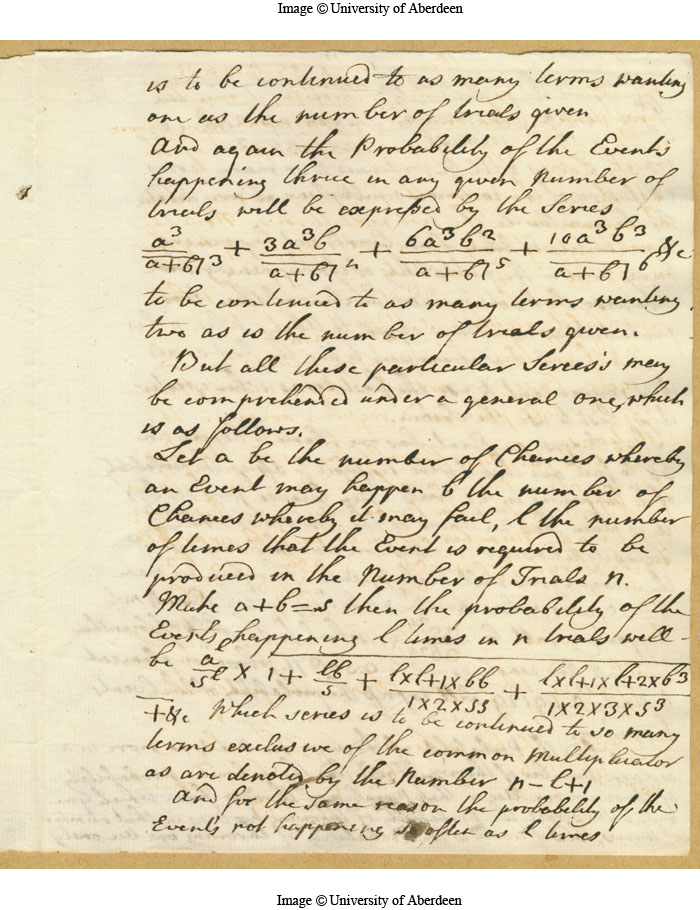 Image © University of Aberdeen
is to be continued to as many terms wanting
one as the number of trials given
And again the Probability of the Event's
happening thrice in any given Number of
trials will be expressed by the Series
a³/a+b|³ + 3a³b/a+b|⁴ + 6a³b²/a+b|⁵ + 10a³b³/a+b|⁶ &c
to be continued to as many terms wanting
two as is the number of trials given.
But all these particular Series's may
be comprehended under a general one, which
is as follows.
Let a be the number of Chances whereby
an Event may happen b the number of
Chances whereby it may fail, l the number
of times that the Event is required to be
produced in the Number of Trials n.
Make a+b=s then the probability of the
Event's happening l times in n trials will
be aˡ/sˡ × 1 + lb/s + l×l+1×bb/1×2×ss + l×l+1×l+2×b³/1×2×3×s³
+&c Which series is to be continued to so many
terms exclusive of the common Multiplicator
as are denoted by the Number n–l+1
And for the same reason the probability of the
Event's not happening so often as l times
Image © University of Aberdeen